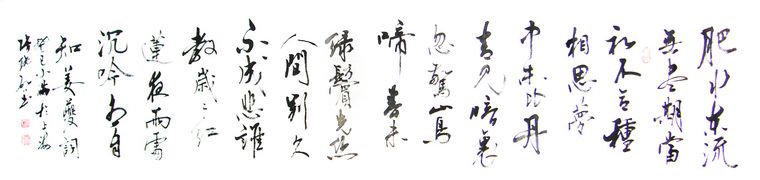 肥水东流
無尽期當
初不合種
相思夢
中未比丹
青見暗裏
忽驚山鳥
啼春未
绿鬢先丝
人間別久
不成悲誰
教歲々红
蓮夜两處
沉吟各自
知姜夔詞
癸巳小於上海